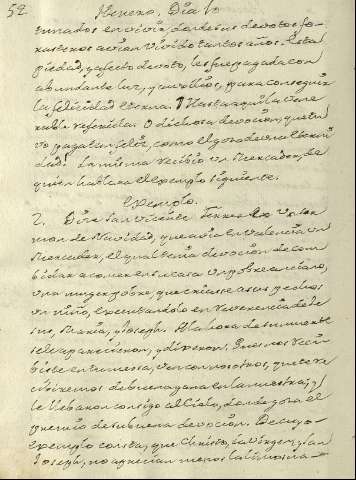 52. Heneno. Dia 10
piedad, y afecto devoto, les fue pagada con
abundante luz, y auxilios, para conseguir
la felicidad eterna. Hasta aqui la vene
rable referida. O dichosa devocion, que tu
vo paga tan feliz, como el gozo de una eterni
dad! La misma recibio un Mercader, de
quien hablara el exemplo siguiente.
Exemplo.
2. Dize San Vicente Ferrer en un ser
mon de Navidad, que avia en Valencia un
Mercader, el qual tenia devocion de com
bidar a comer en su casa un pobre anciano,
una muger pobre, que criasse a sus pechos
un niño, executandolo en reverencia de Je
sus, Maria, y Joseph. A la hora de su muerte
se le aparecieron, y dixeron: Pues nos reci
biste en tu mesa, ven con nosotros, que te re
cibiremos de buena gana en la nuestra; y
le llebaron consigo al Cielo, donde goza el
premio de su buena devocion. De cuyo
exemplo consta, que Christo, la Virgen, y San
Joseph, no aprecian menos la limosna